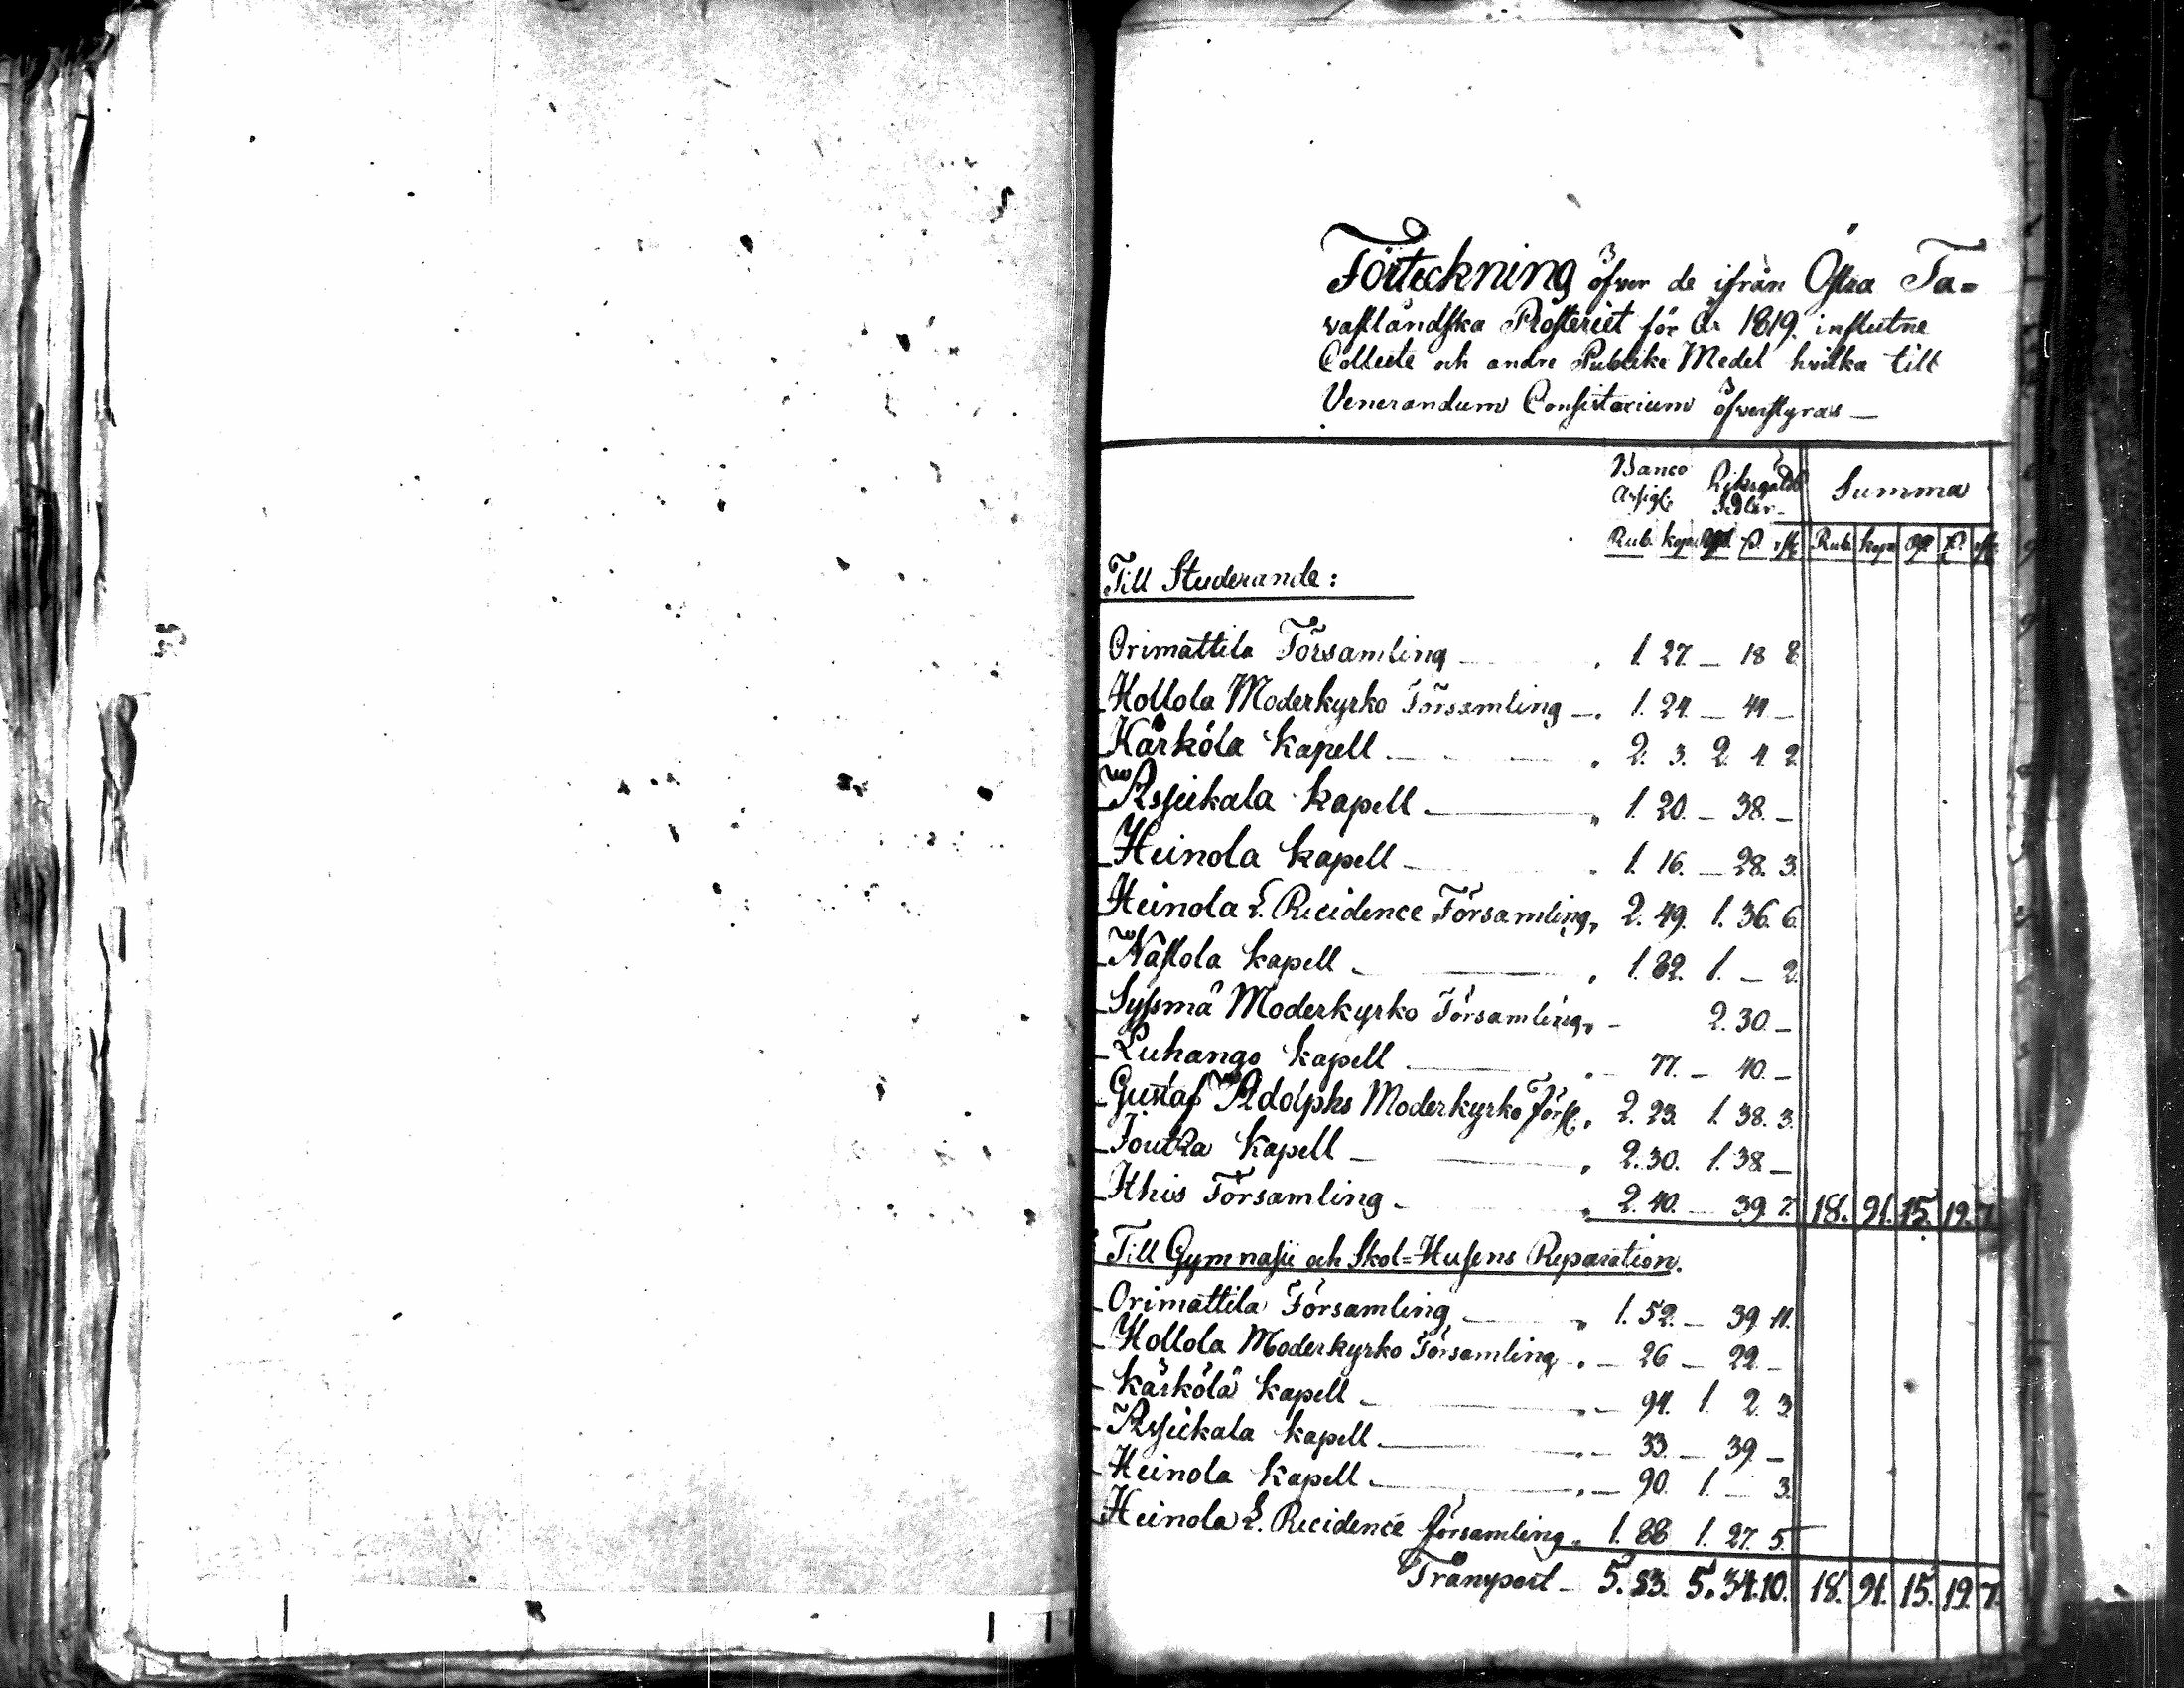 Förteckning öfver de ifrån Östra Ta=
vastländska Prosteriet för År 1819. influtne
Collecte och andre Publike Medel hvilka till
Venerandum Consistorium öfverstyras —
Banco Riksgälds Summa
Assign: Sedlar.
Rub. kop. Rdr ß. rst. Rub. kop. Rdr ß. rst.
Till Studerande:
Orimattila Församling — 1. 27. — 18 8
Hollola Moderkyrko Församling —. 1. 24. — 44 —
Kärkölä Kapell — 2. 3. 2. 4. 2
Assickala Kapell — 1. 20. — 38. —
Heinola Kapell — 1. 16. — 28. 3.
Heinola L. Recidence Församling, 2. 49. 1. 36. 6.
Nastola Kapell — 1. 82. 1. — 2.
Syssmä Moderkyrko Församling, — 2. 30. —
Luhango Kapell — 77. — 40. —
Gustaf Adolphs Moderkyrko Förs. 2. 23. 1. 38. 3.
Joutza Kapell — 2. 30. 1. 38 —
Ithis Församling — 2. 40. — 39. 7. 18. 91. 15. 19. 7
Till Gymnasii och Skol=Husens Reparation.
Orimattila Församling — 1. 52. — 39. 11.
Hollola Moderkyrko Församling — 26 — 22. —
Kärkölä Kapell — 94. 1. 2. 3
Assickala Kapell — 33. — 39. —
Heinola Kapell — 90. 1. — 3.
Heinola L. Recidence församling, 1. 88 1. 27. 5.
Transport — 5. 83. 5. 34. 10. 18. 91. 15. 19. 7.